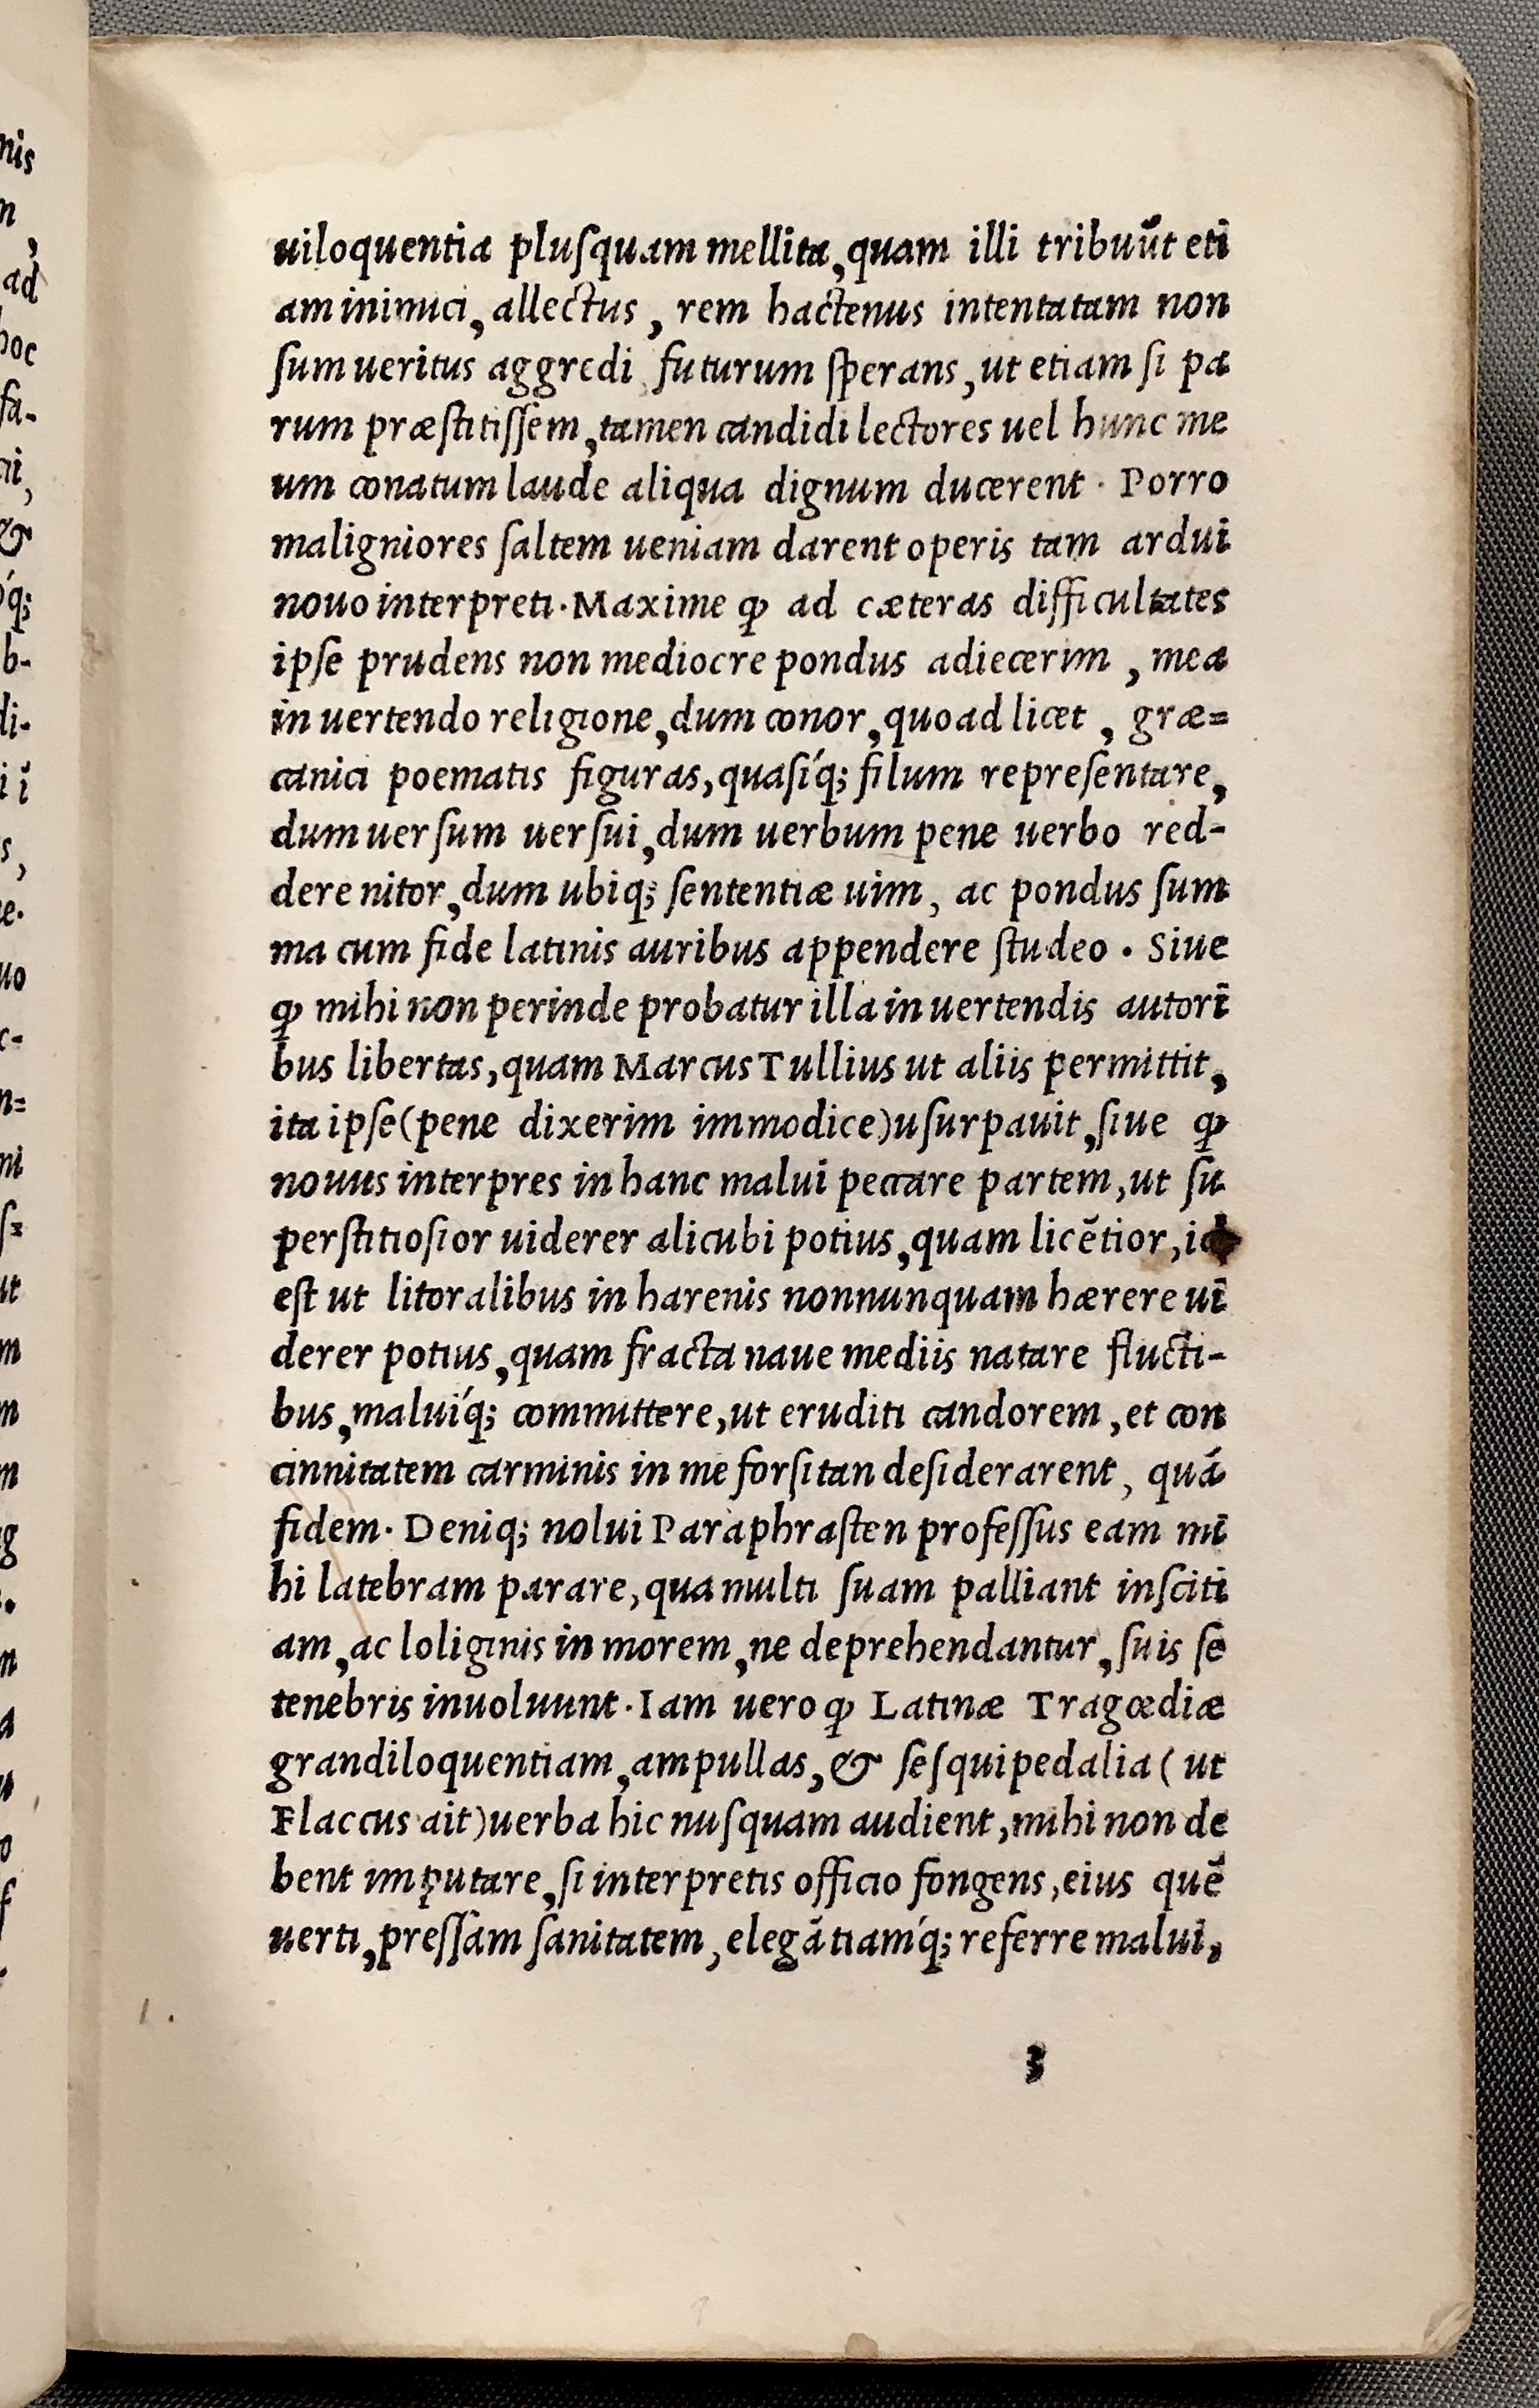 uiloquentia plusquam mellita, quam illi tribuūt eti
am inimici, allectus, rem hactenus intentatam non
sum ueritus aggredi futurum sperans, ut etiam si pa
rum præstitissem, tamen candidi lectores uel hunc me
um conatum laude aliqua dignum ducerent. Porro
maligniores saltem ueniam darent operis tam ardui
nouo interpreti. Maxime ꝙ ad cæteras difficultates
ipse prudens non mediocre pondus adiecerim, mea
in uertendo religione, dum conor, quoad licet, græ=
canici poematis figuras, quasíq; filum representare,
dum uersum uersui, dum uerbum pene uerbo red-
dere nitor, dum ubiq; sententiæ uim, ac pondus sum
ma cum fide latinis auribus appendere studeo. Siue
ꝙ mihi non perinde probatur illa in uertendis autori
bus libertas, quam Marcus Tullius ut aliis permittit,
ita ipse (pene dixerim immodice) usurpauit, siue ꝙ
nouus interpres in hanc malui peccare partem, ut su
perstitiosior uiderer alicubi potius, quam licētior, id
est ut litoralibus in harenis nonnunquam hærere ui
derer potius, quam fracta naue mediis natare flucti-
bus, maluíq; committere, ut eruditi candorem, et con
cinnitatem carminis in me forsitan desiderarent, quā
fidem. Deniq; nolui Paraphrasten professus eam mi
hi latebram parare, qua multi suam palliant insciti
am, ac loliginis in morem, ne deprehendantur, suis se
tenebris inuoluunt. Iam uero ꝙ Latinæ Tragœdiæ
grandiloquentiam, ampullas, & sesquipedalia (ut
Flaccus ait) uerba hic nusquam audient, mihi non de
bent imputare, si interpretis officio fongens, eius quē
uerti, pressam sanitatem, elegātiamq́; referre malui,
3
nis
n
,
ad
hoc
fa-
ci,
&
q́;
b-
di-
i ĩ
s,
e.
uo
c-
n=
ni
s=
ut
m
m
m
g
.
n
a
o
f